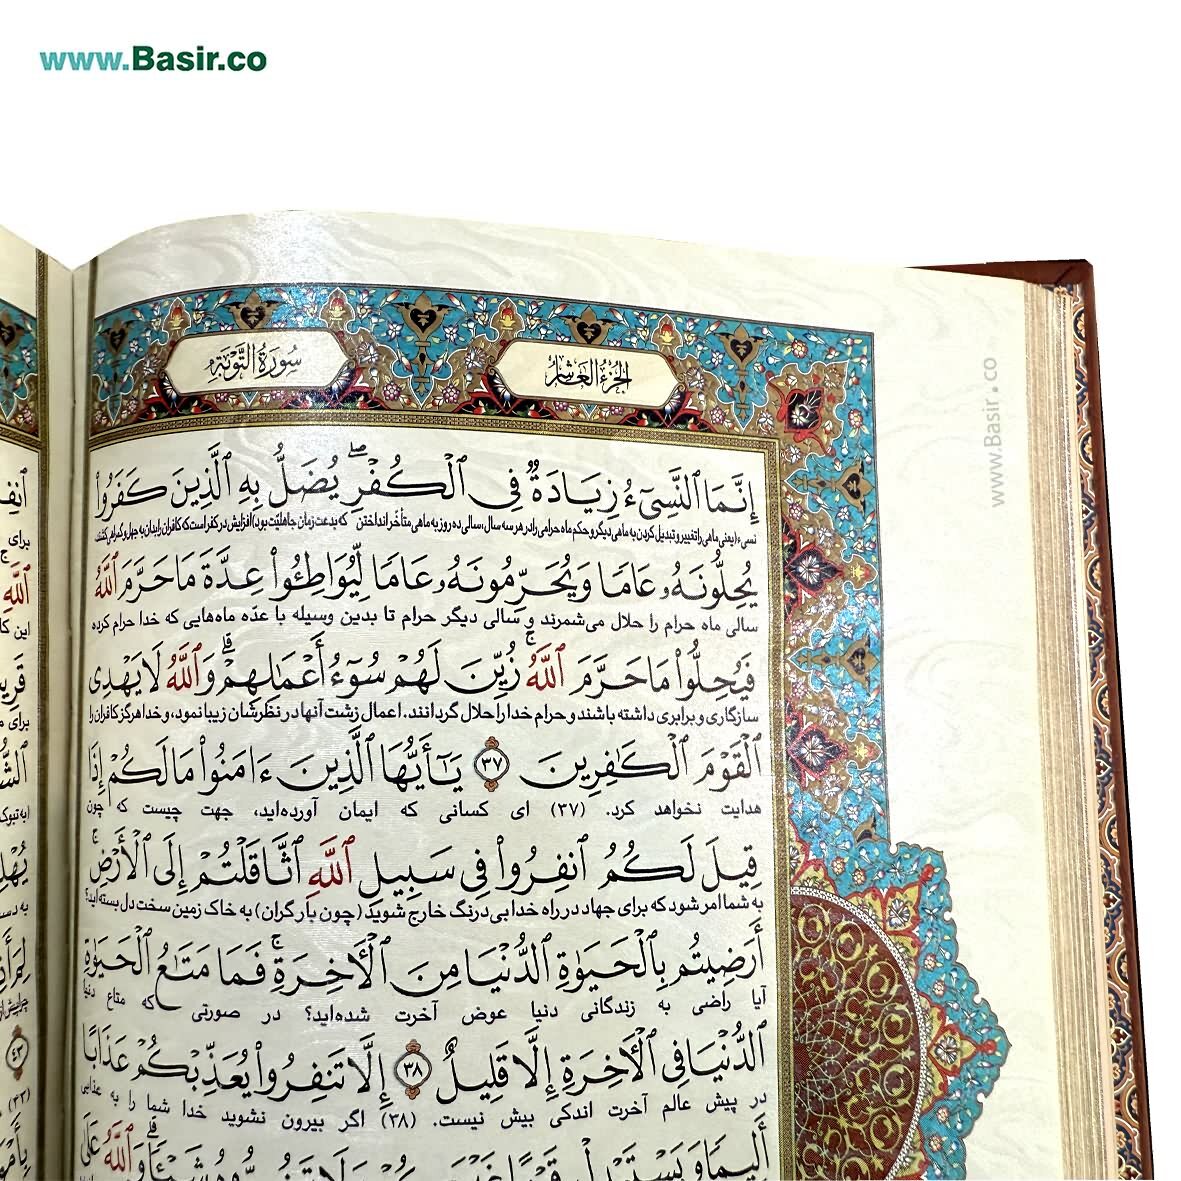 www.Basir.co
الجزء العاشر
سورة التوبة
إِنَّمَا ٱلنَّسِىٓءُ زِيَادَةٌ فِى ٱلْكُفْرِ ۖ يُضَلُّ بِهِ ٱلَّذِينَ كَفَرُوا۟
نسیء (یعنی ماهی را تغییر و تبدیل کردن به ماهی دیگر و حکم ماه حرامی را در هر سه سال، سالی ده روز به ماهی متأخر انداختن که بدعت زمان جاهلیت بود) افزایش در کفر است که کافران را بدان به جهل و گمراهی کشند،
يُحِلُّونَهُۥ عَامًا وَيُحَرِّمُونَهُۥ عَامًا لِّيُوَاطِـُٔوا۟ عِدَّةَ مَا حَرَّمَ ٱللَّهُ
سالی ماه حرام را حلال می‌شمرند و سالی دیگر حرام تا بدین وسیله با عدّه ماه‌هایی که خدا حرام کرده
فَيُحِلُّوا۟ مَا حَرَّمَ ٱللَّهُ ۚ زُيِّنَ لَهُمْ سُوٓءُ أَعْمَـٰلِهِمْ ۗ وَٱللَّهُ لَا يَهْدِى
سازگاری و برابری داشته باشند و حرام خدا را حلال گردانند. اعمال زشت آنها در نظرشان زیبا نمود، و خدا هرگز کافران را
ٱلْقَوْمَ ٱلْكَـٰفِرِينَ ﴿٣٧﴾ يَـٰٓأَيُّهَا ٱلَّذِينَ ءَامَنُوا۟ مَا لَكُمْ إِذَا
هدایت نخواهد کرد. (۳۷) ای کسانی که ایمان آورده‌اید، جهت چیست که چون
قِيلَ لَكُمُ ٱنفِرُوا۟ فِى سَبِيلِ ٱللَّهِ ٱثَّاقَلْتُمْ إِلَى ٱلْأَرْضِ ۚ
به شما امر شود که برای جهاد در راه خدا بی‌درنگ خارج شوید (چون بار گران) به خاک زمین سخت دل بسته‌اید؟
أَرَضِيتُم بِٱلْحَيَوٰةِ ٱلدُّنْيَا مِنَ ٱلْـَٔاخِرَةِ ۚ فَمَا مَتَـٰعُ ٱلْحَيَوٰةِ
آیا راضی به زندگانی دنیا عوض آخرت شده‌اید؟ در صورتی که متاع دنیا
ٱلدُّنْيَا فِى ٱلْـَٔاخِرَةِ إِلَّا قَلِيلٌ ﴿٣٨﴾ إِلَّا تَنفِرُوا۟ يُعَذِّبْكُمْ عَذَابًا
در پیش عالم آخرت اندکی بیش نیست. (۳۸) اگر بیرون نشوید خدا شما را به عذابی
أَلِيمًا وَيَسْتَبْدِلْ قَوْمًا غَيْرَكُمْ وَلَا تَضُرُّوهُ شَيْـًٔا ۗ وَٱللَّهُ عَلَىٰ
www.Basir.co